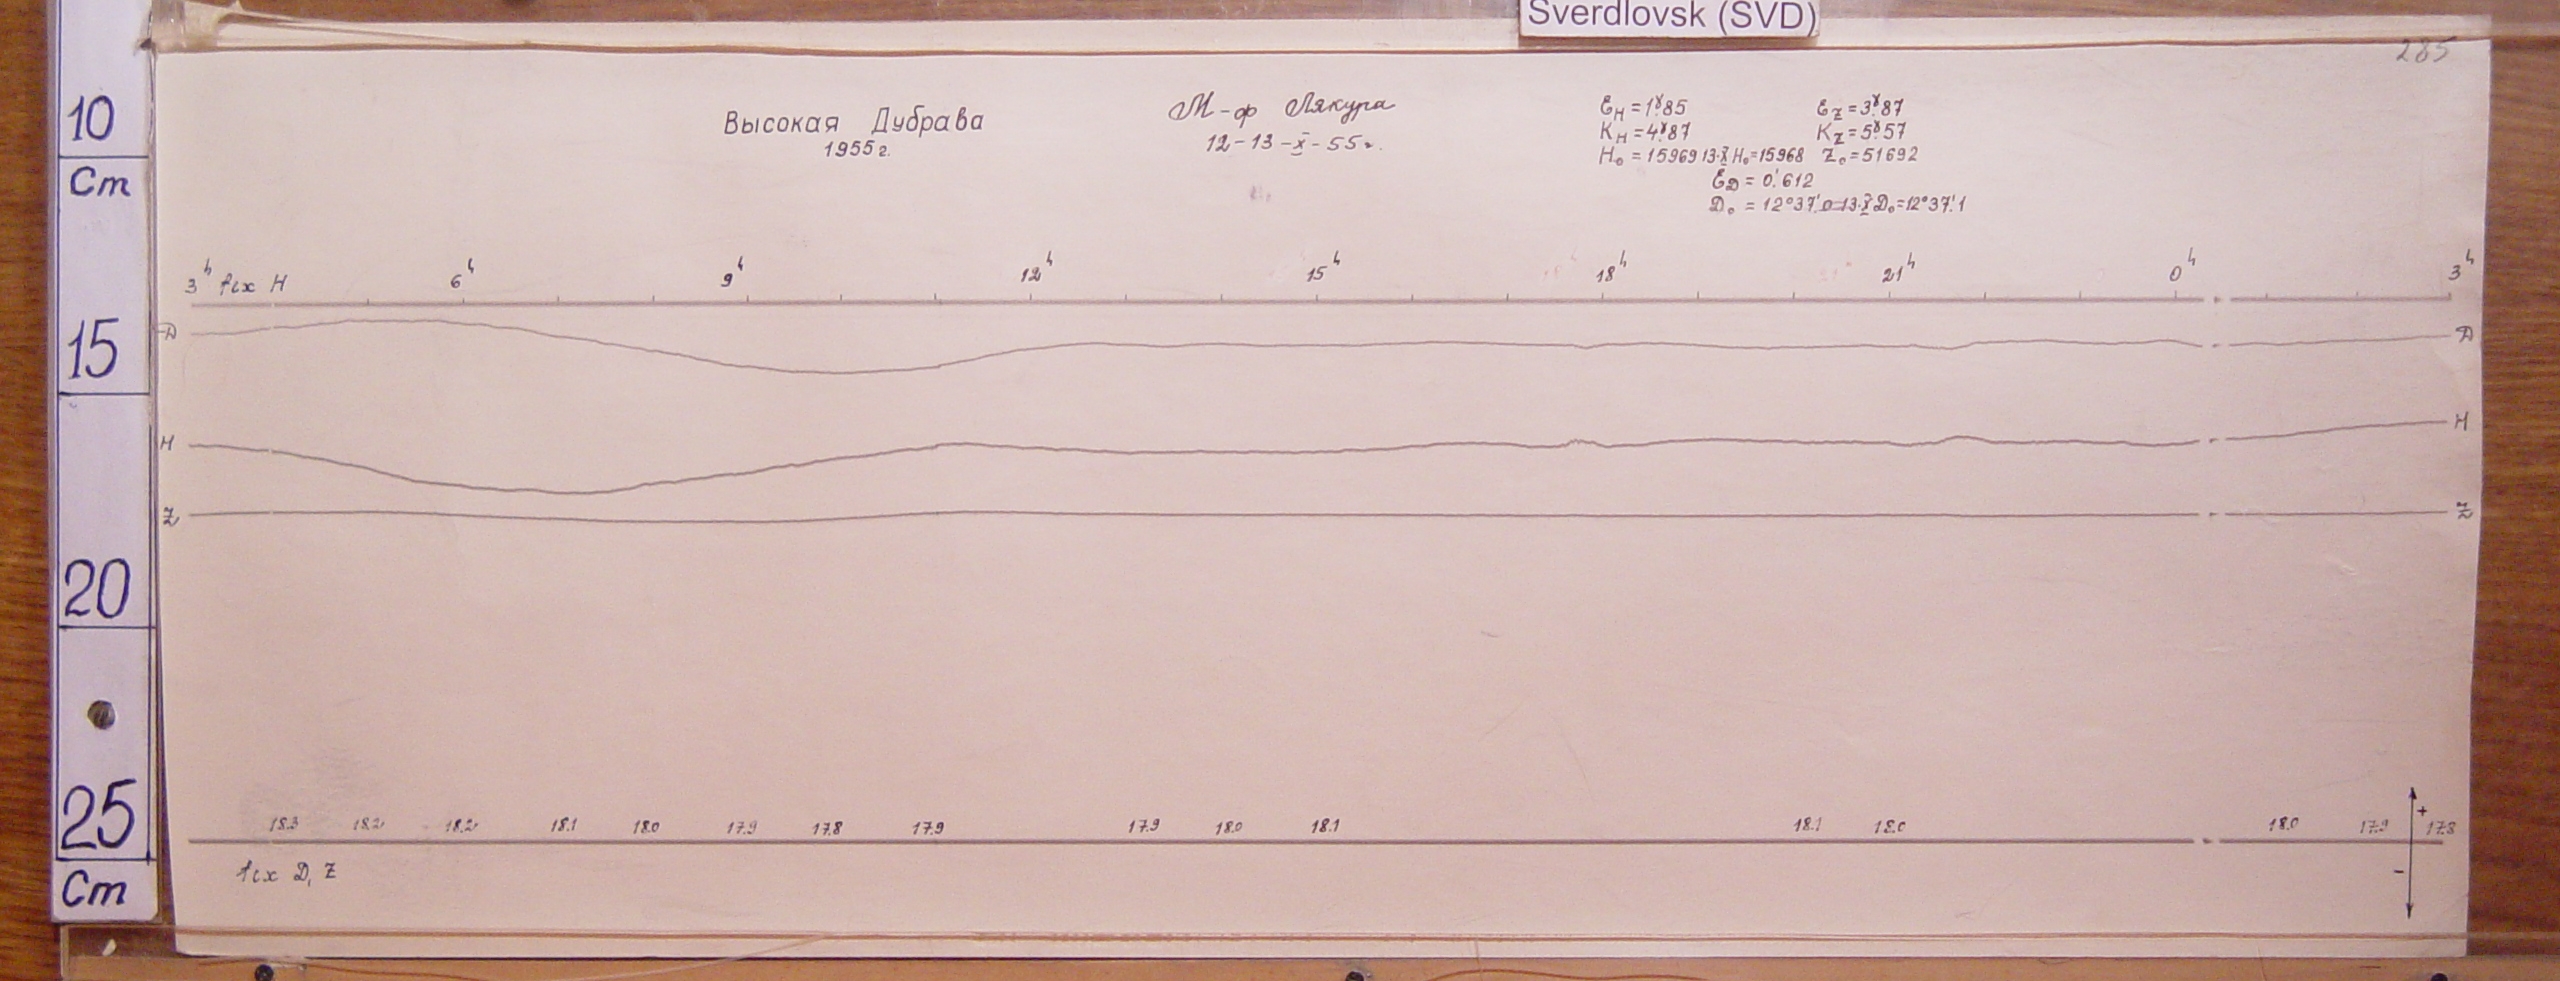 Sverdlovsk (SVD)
285
10
Cm
15
20
25
Cm
Высокая Дубрава
1955 г.
М-ф Лякура
12-13-X-55 г.
EH = 1γ.85 EZ = 3γ.87
KH = 4γ.87 KZ = 5γ.57
H₀ = 15969 13.X H₀=15968 Z₀=51692
ED = 0'.612
D₀ = 12°37'.0 13.X D₀=12°37'.1
3h H 6h 9h 12h 15h 18h 21h 0h 3h
D D
H H
Z Z
18.3 18.2 18.2 18.1 18.0 17.9 17.8 17.9 17.9 18.0 18.1 18.1 18.0 18.0 17.9 17.8
+
-
D, Z